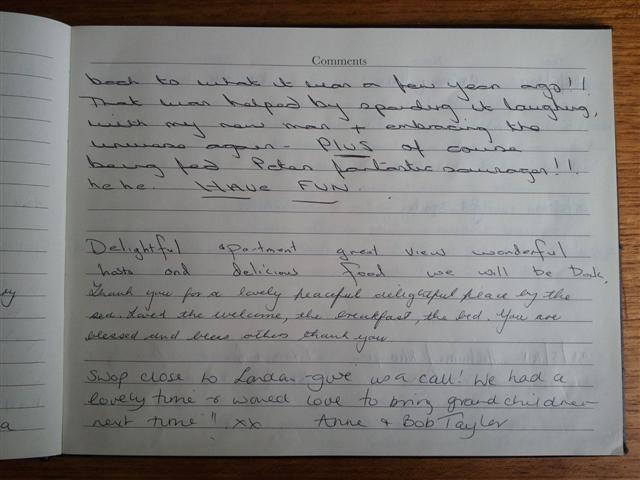 Comments
back to what it was a few years ago!!
That was helped by spending it laughing,
with my new man + embracing the
universe again - PLUS of course
being fed Peters fantastic sausages!!
he he. HAVE FUN.
Delightful apartment great view wonderful
hosts and delicious food we will be back,
Thank you for a lovely peaceful delightful place by the
sea. Loved the welcome, the breakfast, the bed. You are
blessed and bless others thank you
Swop close to London - give us a call! We had a
lovely time & would love to bring grandchildren
next time!! xx Anne & Bob Taylor
ry
a